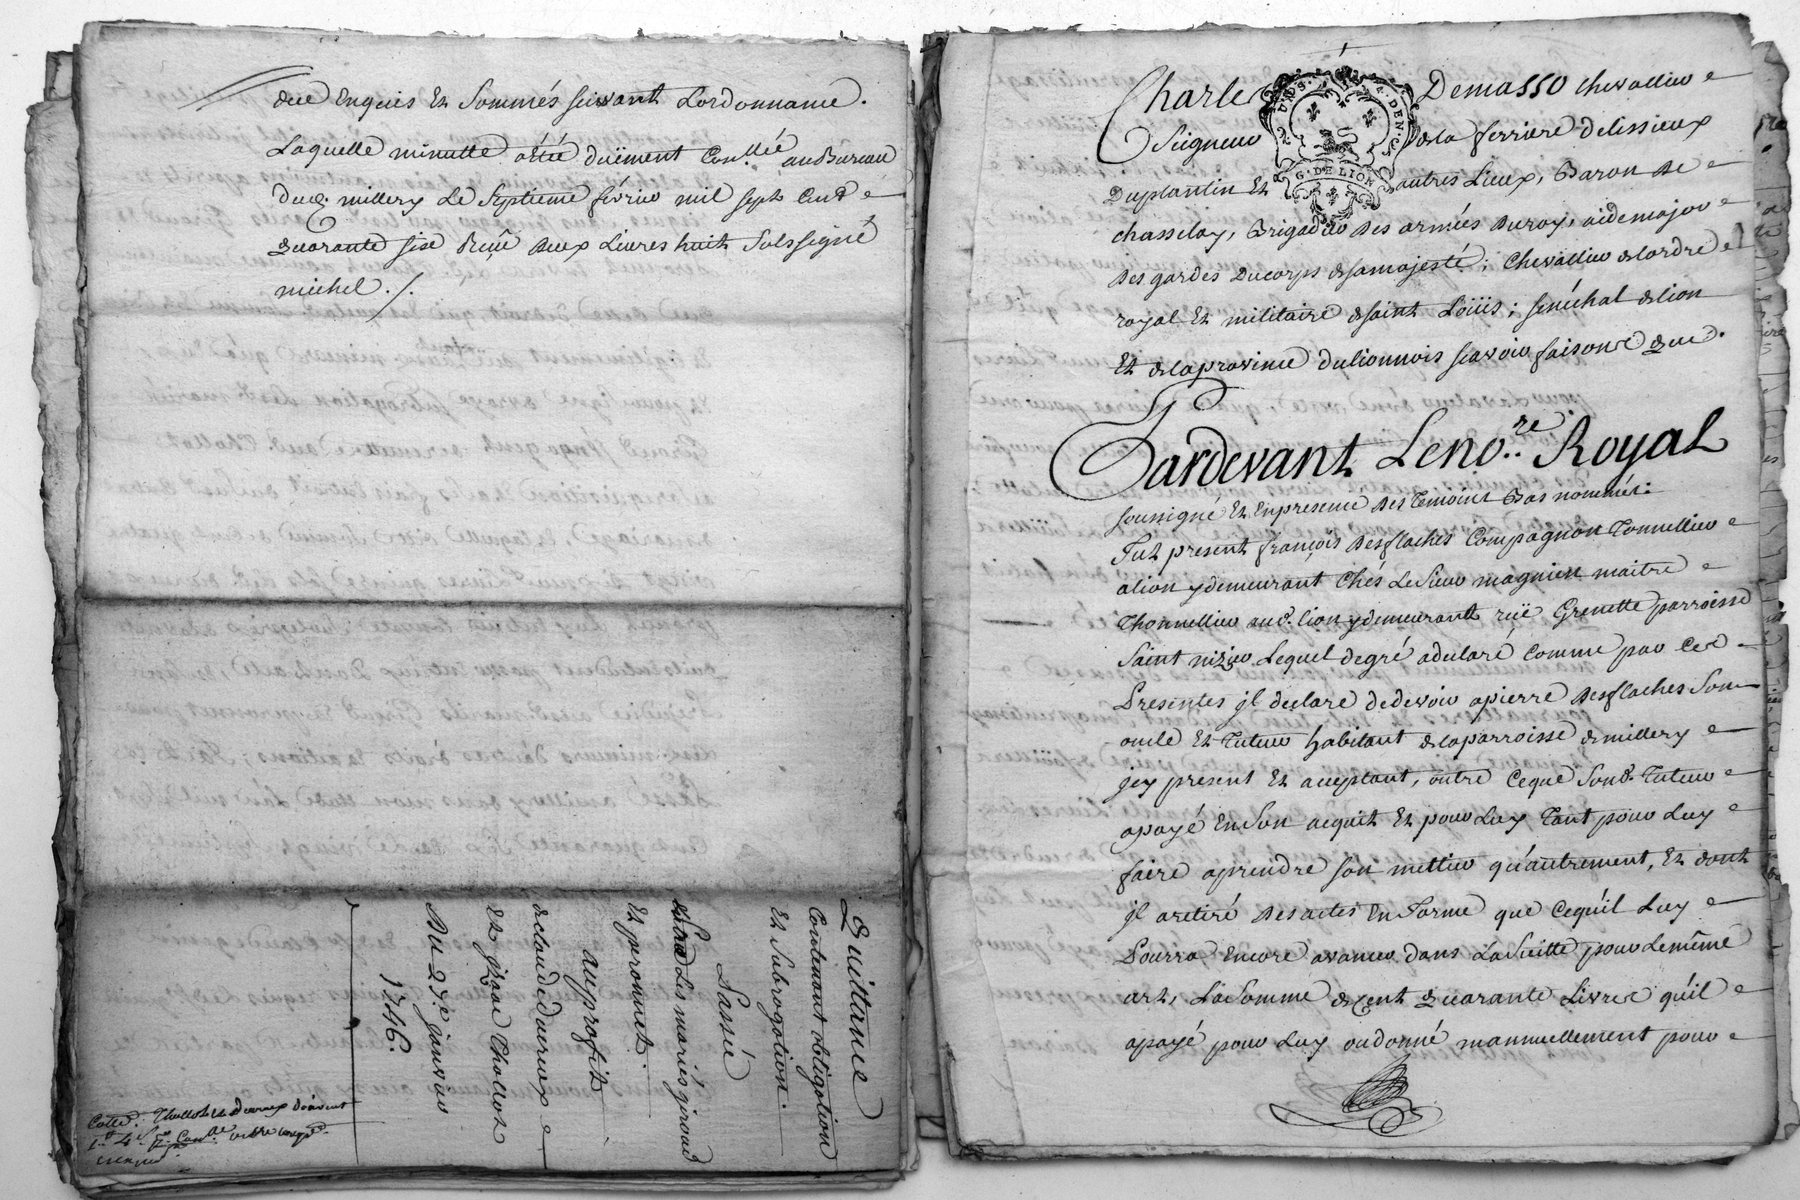 dee Enquis Et Sommés suivant Lordonnance.
Laquelle minutte a été duëment Con.llée au Bureau
dud. millery Le Septieme février mil sept Cent
quarante six Reçû deux Livres huit Sols signé
michel ./.
Quittance
Contenant obligation
Et Subrogation.
Passée
Les mariés giroud
Et peronnet.
au profit
de claude durieux
Et jean Thollot
Du 25.e janvier
1746.
Charles Demasso chevallier
Seigneur de la ferriere de lissieux
Duplantin Et autres Lieux, Baron de
chasselay, Brigadier des armées du roy, aide major
des gardes du corps de sa majesté; chevallier de lordre
royal Et militaire de saint Loüis; senéchal de lion
Et de la province du lionnois scavoir faisons que.
G. DE LION
Pardevant Le no.re Royal
soussigné Et En presence des temoins Bas nommés:
Fut present françois desflaches Compagnon Tonnellier
a lion y demeurant chés Le Sieur magnien maitre
Thonnellier aud. lion y demeurant ruë Grenette parroisse
Saint nizier Lequel de gré a declaré comme par Ces
Presentes jl declare de devoir a pierre desflaches Son
oncle Et Tuteur habitant de la parroisse de millery
jcy present Et acceptant, outre Ce que Sond. Tuteur
a payé En Son acquit Et pour Luy Tant pour Luy
faire aprendre son mettier qu'autrement, Et dont
jl a retiré des actes En Forme que Ce qu'il Luy
Pourra Encore avancer dans La Suitte pour Le mêmé
art, La Somme de Cent quarante Livres qu'il
a payé pour Luy ou donné mannuellement pour